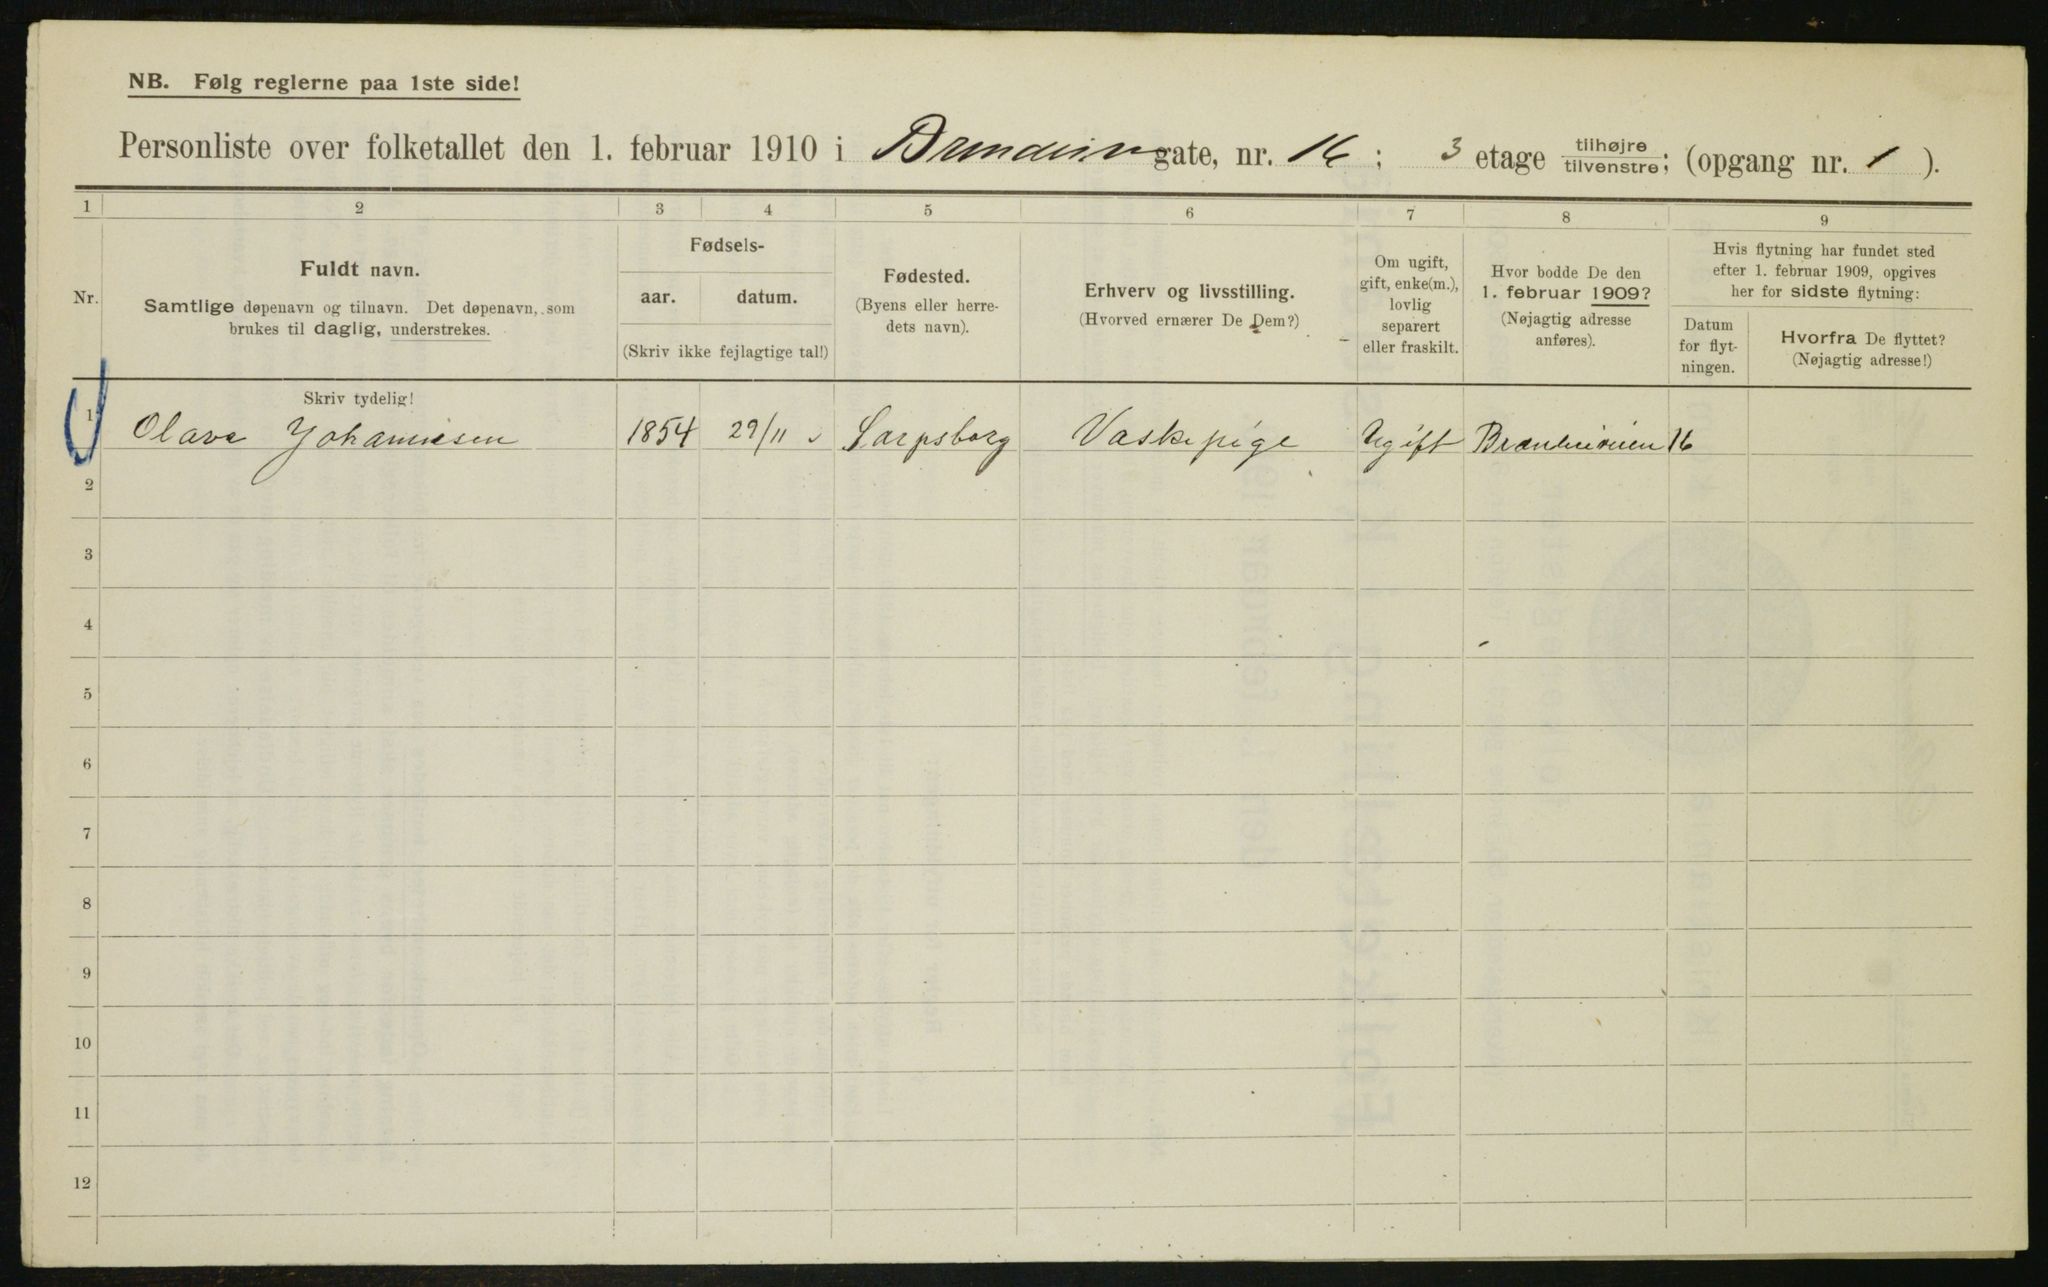 NB. Følg reglerne paa 1ste side!
Personliste over folketallet den 1. februar 1910 i gate, nr. 16; 3 etage tilhøjre tilvenstre; (opgang nr. 1).
1 2 3 4 5 6 7 8 9
Nr.
Fuldt navn.
Samtlige døpenavn og tilnavn. Det døpenavn, som
brukes til daglig, understrekes.
Fødsels-
aar. datum.
(Skriv ikke fejlagtige tal!)
Fødested.
(Byens eller herre-
dets navn).
Erhverv og livsstilling.
(Hvorved ernærer De Dem?)
Om ugift,
gift, enke(m.),
lovlig
separert
eller fraskilt.
Hvor bodde De den
1. februar 1909?
(Nøjagtig adresse
anføres).
Hvis flytning har fundet sted
efter 1. februar 1909, opgives
her for sidste flytning:
Datum
for flyt-
ningen.
Hvorfra De flyttet?
(Nøjagtig adresse!)
Skriv tydelig!
1 Olava Johannesen 1854 29/11 Sarpsborg Vaskepige Ugift 16
2
3
4
5
6
7
8
9
10
11
12